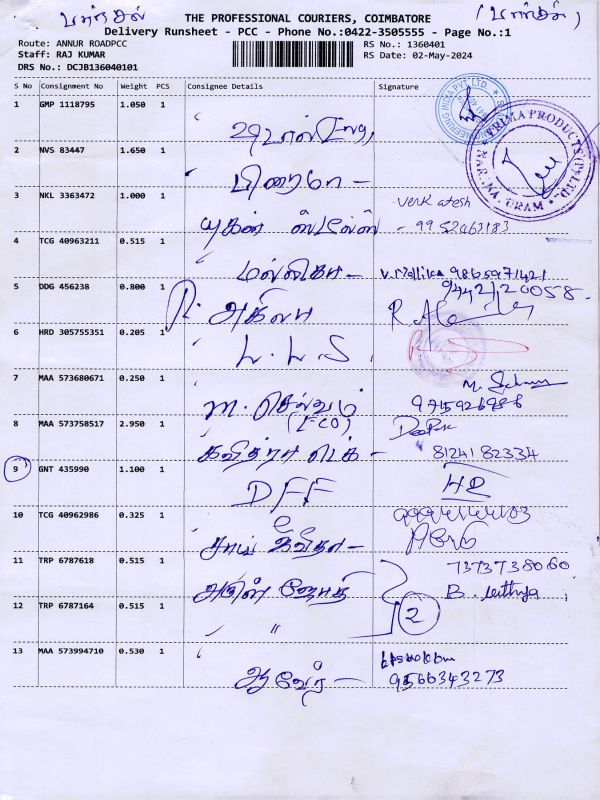 பார்சல் THE PROFESSIONAL COURIERS, COIMBATORE (பார்சல்)
Delivery Runsheet - PCC - Phone No.:0422-3505555 - Page No.:1
Route: ANNUR ROADPCC RS No.: 1360401
Staff: RAJ KUMAR RS Date: 02-May-2024
DRS No.: DCJB136040101
S No Consignment No Weight PCS Consignee Details Signature
1 GMP 1118795 1.050 1
PRIMA PRODUCTS (P) LTD.
2 NVS 83447 1.650 1
3 NKL 3363472 1.000 1 Venkatesh
யுகன் ஸ்டீல்ஸ் - 9952463183
4 TCG 40963211 0.515 1
மல்லிகா - V. Mallika 9865971421
5 DDG 456238 0.800 1 9442120058
R. அகிலா
6 HRD 305755351 0.205 1
L. L. S.
7 MAA 573680671 0.250 1
M. செல்வம் 9715926986
8 MAA 573758517 2.950 1 (FCO) Deepak
8124182334
9 GNT 435990 1.100 1
DFF HR
10 TCG 40962986 0.325 1
சாய் கவிதா -
11 TRP 6787618 0.515 1 7373738060
அருள் ஜோதி B.
12 TRP 6787164 0.515 1 2
" "
13 MAA 573994710 0.530 1
9566343273